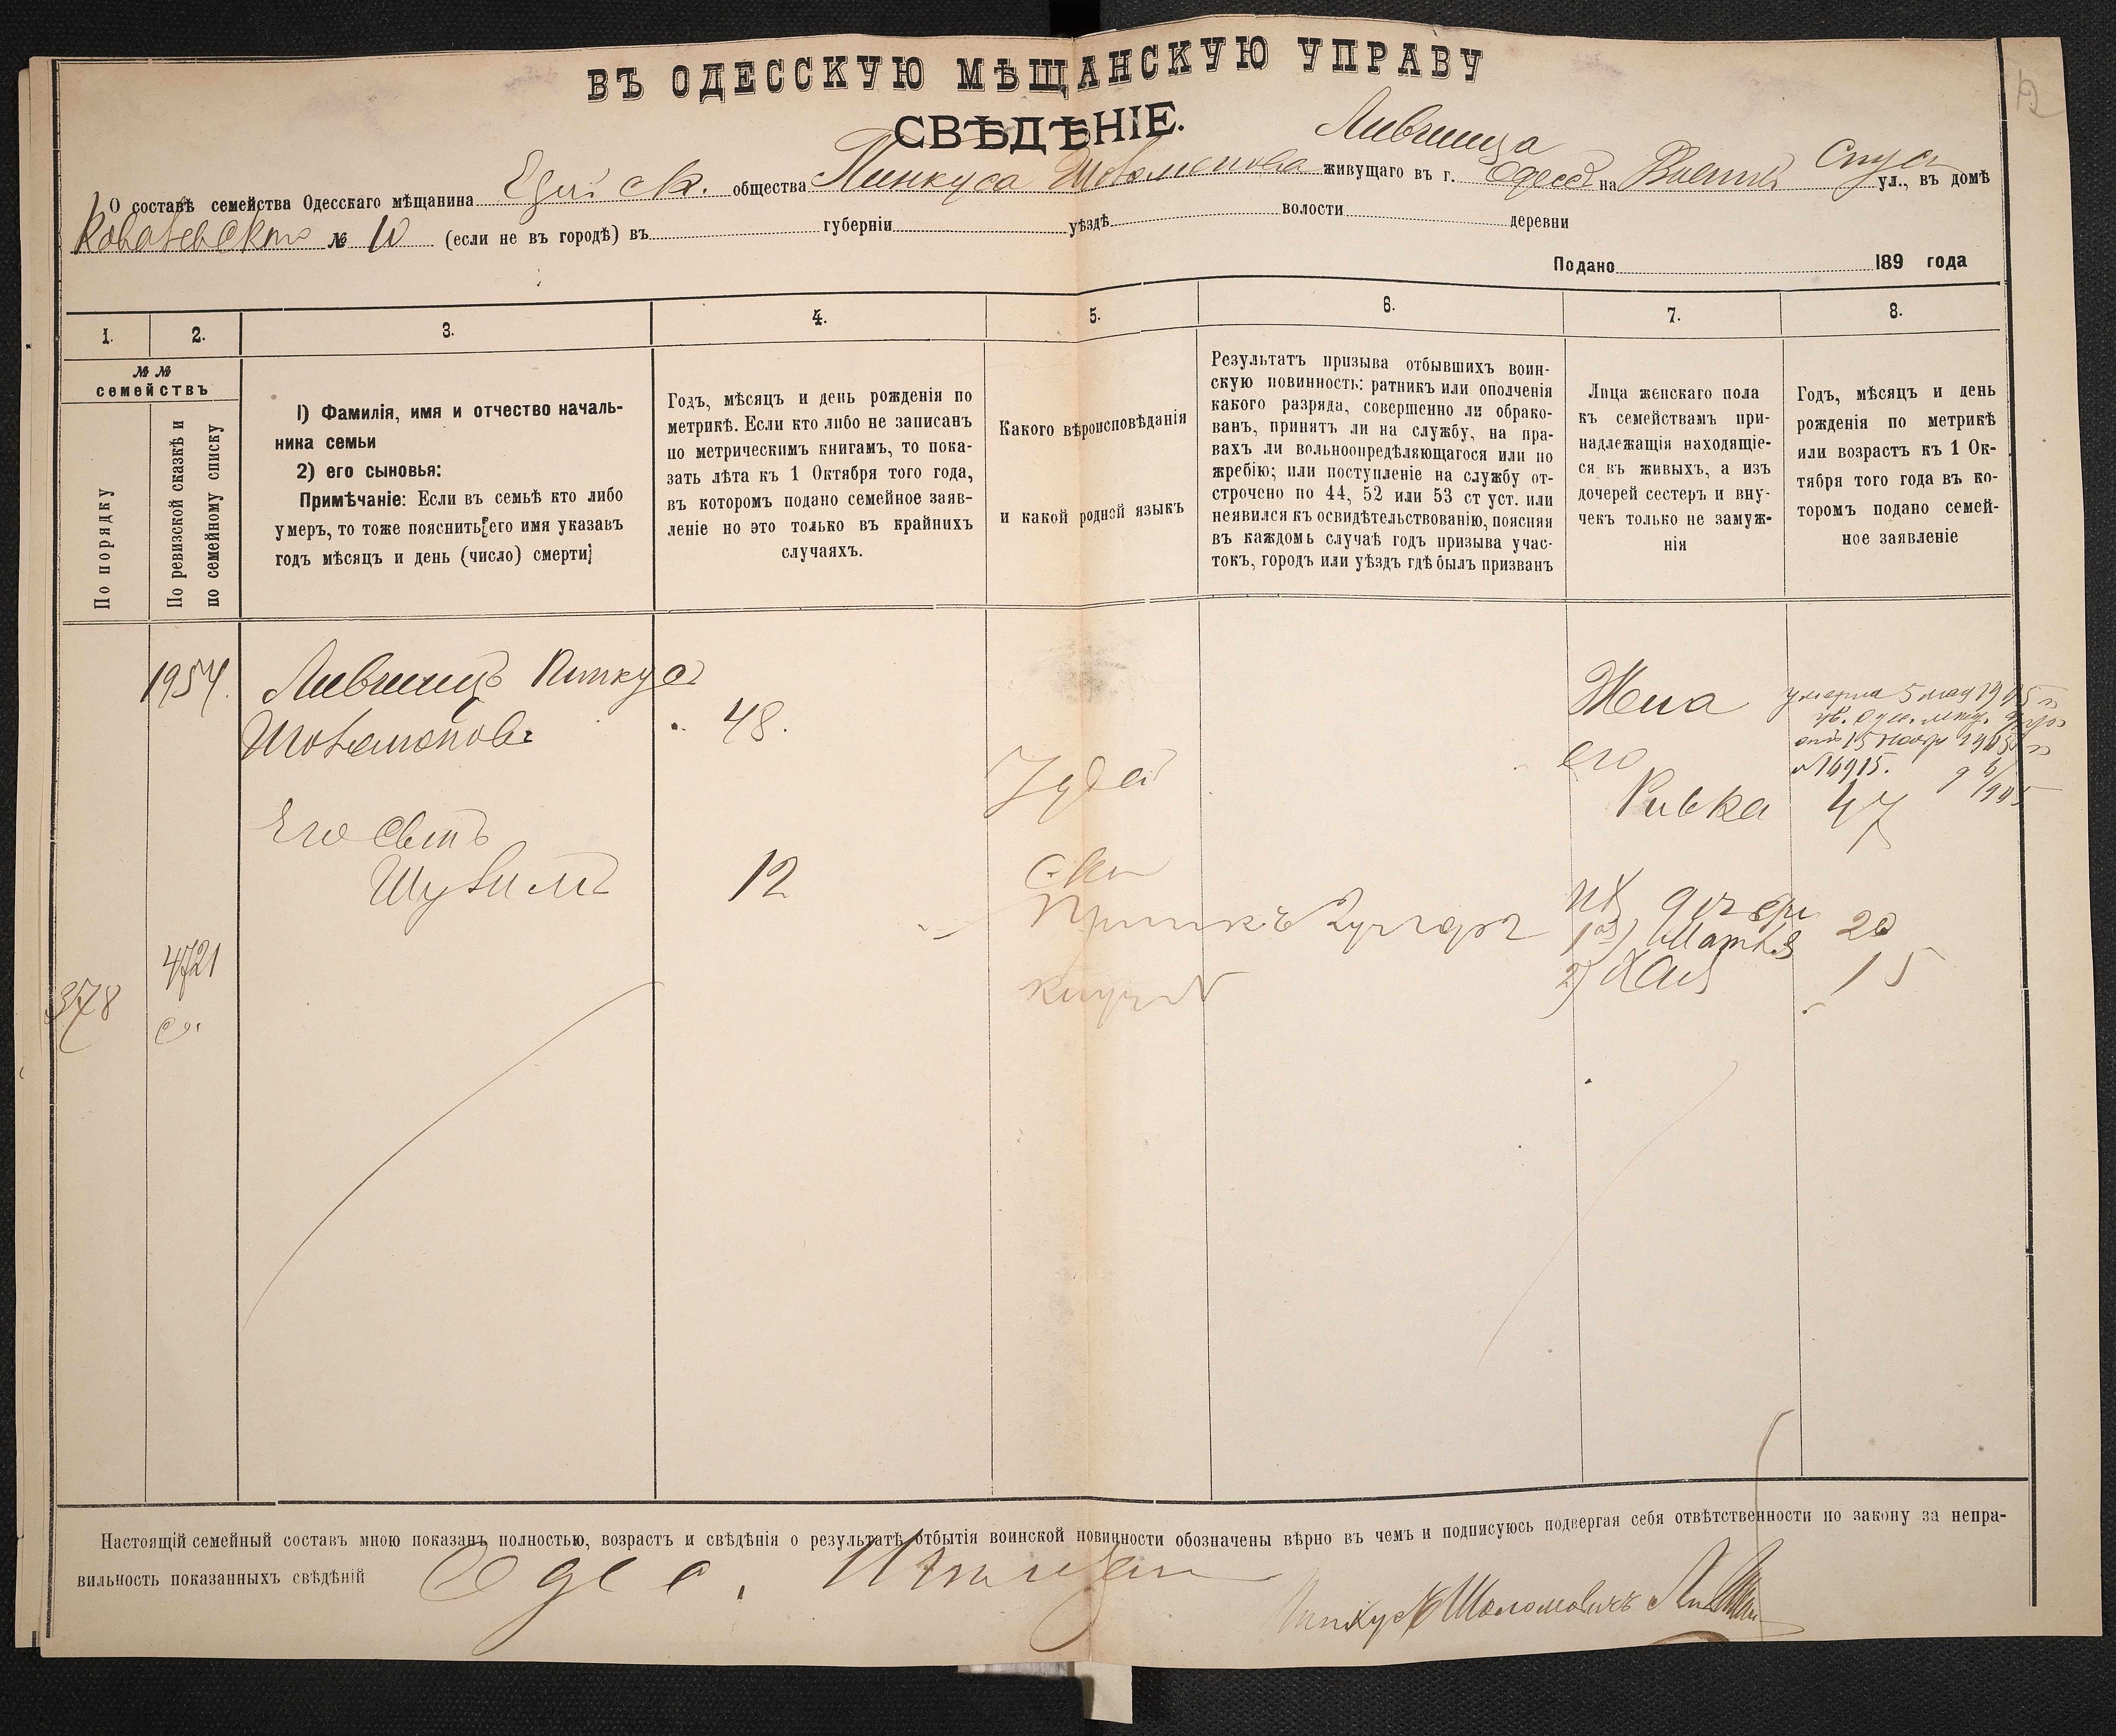 ВЪ ОДЕССКУЮ МѢЩАНСКУЮ УПРАВУ
СВѢДѢНІЕ.
Лившица
О составѣ семейства Одесскаго мѣщанина общества Пинкуса живущаго въ г. Одессѣ на ул., въ домѣ
№ 10 (если не въ городѣ) въ губерніи уѣздѣ волости деревни
Подано 189 года
1. 2. 3. 4. 5. 6. 7. 8.
№ №
семействъ
По порядку
По ревизской сказкѣ и
по семейному списку
1) Фамилія, имя и отчество началь-
ника семьи
2) его сыновья:
Примѣчаніе: Если въ семьѣ кто либо
умеръ, то тоже пояснить его имя указавъ
годъ мѣсяцъ и день (число) смерти
Годъ, мѣсяцъ и день рожденія по
метрикѣ. Если кто либо не записанъ
по метрическимъ книгамъ, то пока-
зать лѣта къ 1 Октября того года,
въ которомъ подано семейное заяв-
леніе но это только въ крайнихъ
случаяхъ.
Какого вѣроисповѣданія
и какой родной языкъ
Результатъ призыва отбывшихъ воин-
скую повинность: ратникъ или ополченія
какого разряда, совершенно ли обрако-
ванъ, принятъ ли на службу, на пра-
вахъ ли вольноопредѣляющагося или по
жребію; или поступленіе на службу от-
строчено по 44, 52 или 53 ст уст. или
неявился къ освидѣтельствованію, поясняя
въ каждомъ случаѣ годъ призыва учас-
токъ, городъ или уѣздъ гдѣ былъ призванъ
Лица женскаго пола
къ семействамъ при-
надлежащія находящіе-
ся въ живыхъ, а изъ
дочерей сестеръ и вну-
чекъ только не замуж-
нія
Годъ, мѣсяцъ и день
рожденія по метрикѣ
или возрастъ къ 1 Ок-
тября того года въ ко-
торомъ подано семей-
ное заявленіе
1954. Лившицъ Пинкусъ
48.
Жена
умерла 5 мая 1905 г
№ 16915.
его
Ривка 47
Его сынъ
12
Іудей
ихъ дочери
1) 20
2) Хая 15
4721
378
Настоящій семейный составъ мною показанъ полностью, возрастъ и свѣдѣнія о результатѣ отбытія воинской повинности обозначены вѣрно въ чемъ и подписуюсь подвергая себя отвѣтственности по закону за непра-
вильность показанныхъ свѣдѣній
Пинкусъ Шоломовичъ